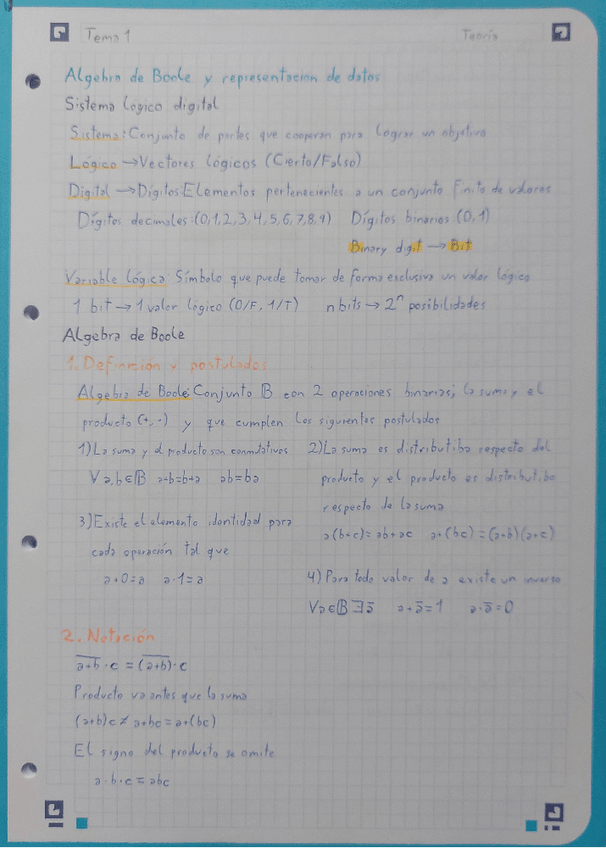 Tema 1 Teoría
Algebra de Boole y representación de datos
Sistema lógico digital
Sistema: Conjunto de partes que cooperan para lograr un objetivo
Lógico → Vectores lógicos (Cierto/Falso)
Digital → Dígitos: Elementos pertenecientes a un conjunto finito de valores
Dígitos decimales: (0,1,2,3,4,5,6,7,8,9) Dígitos binarios (0,1)
Binary digit → Bit
Variable lógica: Símbolo que puede tomar de forma exclusiva un valor lógico
1 bit → 1 valor lógico (0/F, 1/T) n bits → 2ⁿ posibilidades
Algebra de Boole
1. Definición y postulados
Algebra de Boole: Conjunto B con 2 operaciones binarias; la suma y el
producto (+, ·) y que cumplen los siguientes postulados
1) La suma y el producto son conmutativos
∀ a,b ∈ B a+b=b+a ab=ba
2) La suma es distributiba respecto del
producto y el producto es distributiba
respecto de la suma
a(b+c)=ab+ac a+(bc)=(a+b)(a+c)
3) Existe el elemento identidad para
cada operación tal que
a+0=a a·1=a
4) Para todo valor de a existe un inverso
∀a∈B ∃ā a+ā=1 a·ā=0
2. Notación
a̅+̅b̅·c = (a̅+̅b̅)·c
Producto va antes que la suma
(a+b)c ≠ a+bc = a+(bc)
El signo del producto se omite
a·b·c = abc